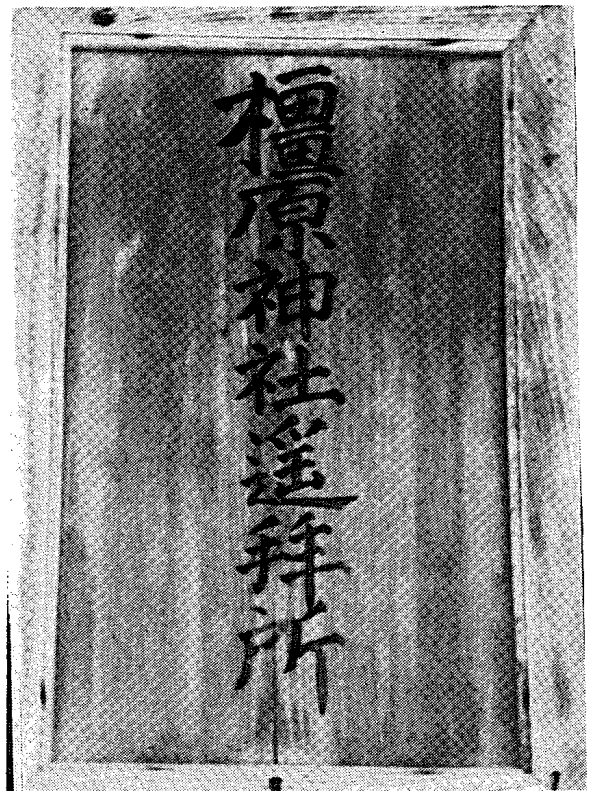 橿原神社遥拜所